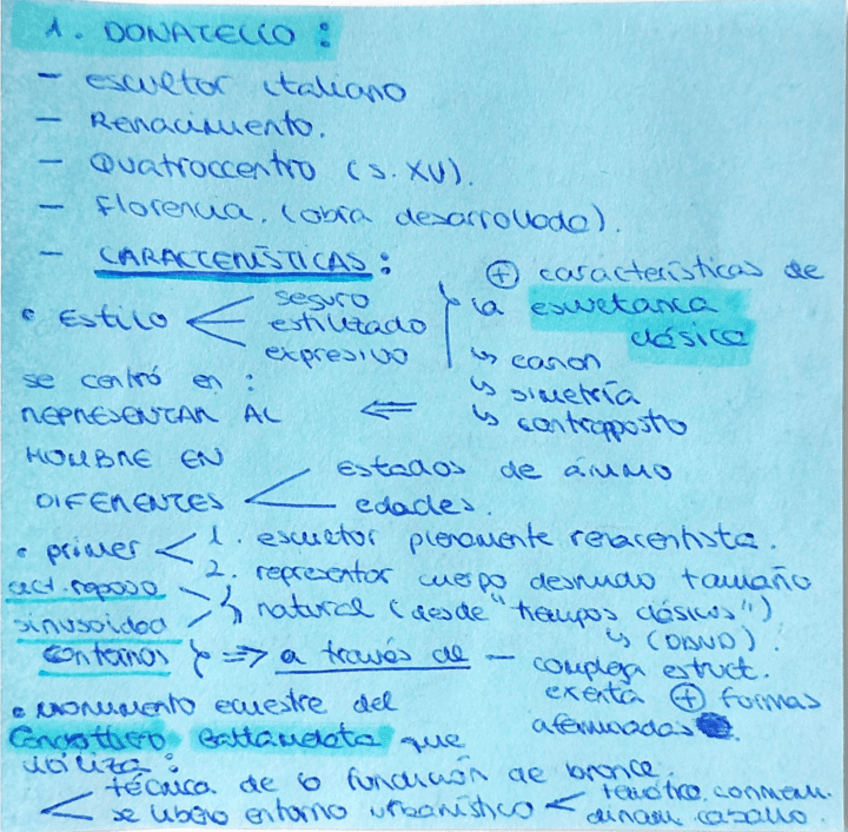 1. DONATELLO :
- escultor italiano
- Renacimiento.
- Quatroccentro (s. XV).
- Florencia. (obra desarrollada).
- CARACTERÍSTICAS :
⊕ características de
la escultura
clásica
↳ canon
↳ simetría
↳ contrapposto
• Estilo
seguro
estilizado
expresivo
⇐
se centró en :
REPRESENTAR AL
HOMBRE EN
DIFERENTES
estados de ánimo
edades.
• primer
1. escultor plenamente renacentista.
2. representar cuerpo desnudo tamaño
natural (desde "tiempos clásicos")
↳ (DAVID).
act. reposo
sinuosidad
contornos
⇒ a través de - compleja estruct.
exenta ⊕ formas
afeminadas
• Monumento ecuestre del
Gattamelata que
utiliza :
técnica de la fundición de bronce.
se liberó entorno urbanístico
conmem.
dinam. caballo.